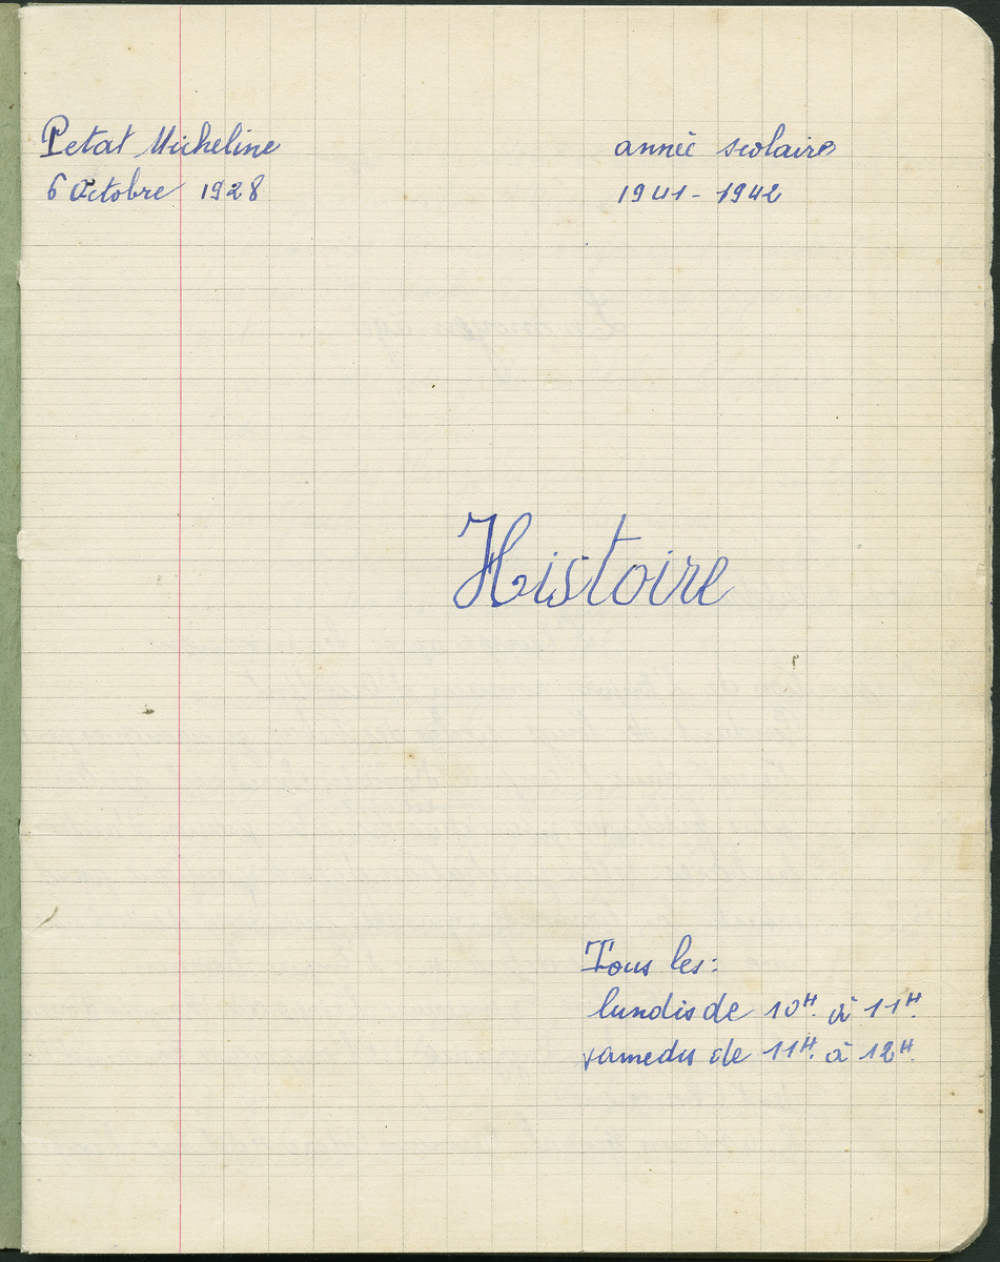 Petat Micheline
6 Octobre 1928
année scolaire
1941-1942
Histoire
Tous les:
lundis de 10H. à 11H.
samedis de 11H. à 12H.